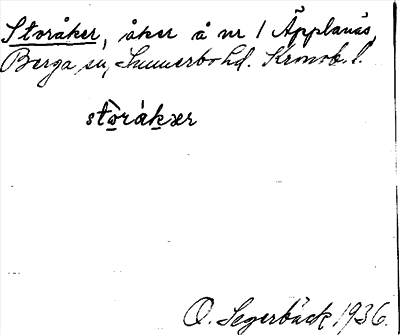 Storåker, åker å nr 1 Äpplanäs,
Berga sn, Sunnerbo hd. Kronob. l.
stòrákær
O. Segerbäck 1936.